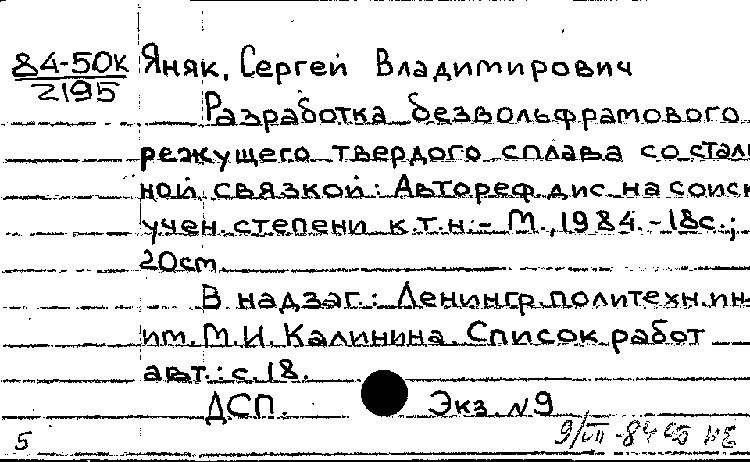 84-50к Яняк, Сергей Владимирович
2195
Разработка безвольфрамового
режущего твердого сплава со сталь
ной связкой: Автореф. дис. на соиск
учен. степени к.т.н. - М., 1984. - 18с.;
20см
В надзаг.: Ленингр. политехн. ин-
им. М.И. Калинина. Список работ
авт.: с. 18.
ДСП. Экз. №9
5 9/VII-84